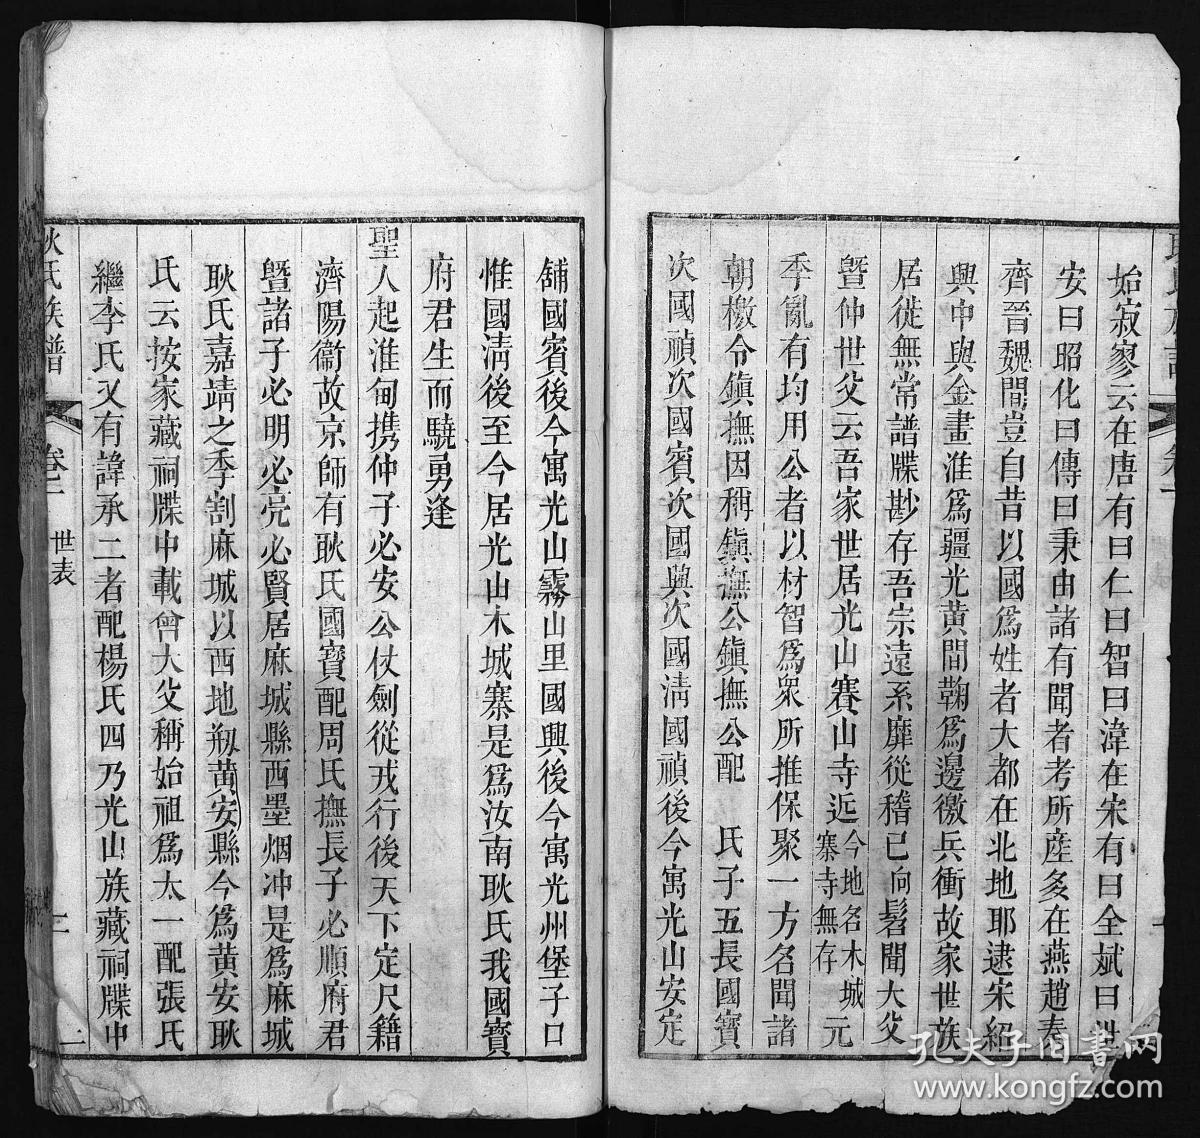 始寂寥云在唐有曰仁曰智曰湋在宋有曰全斌曰世
安曰昭化曰傳曰秉由諸有聞者考所産多在燕趙秦
齊晉魏間豈自昔以國爲姓者大都在北地耶逮宋紹
興中與金畫淮爲疆光黄間鞠爲邊徼兵衝故家世族
居徙無常譜牒尠存吾宗遠系靡從稽已向髫聞大父
曁仲世父云吾家世居光山賽山寺近今地名木城寨寺無存元
季亂有均用公者以材智爲衆所推保聚一方名聞諸
朝檄令鎭撫因稱鎭撫公鎭撫公配 氏子五長國寳
次國禎次國賓次國興次國淸國禎後今寓光山安定
舖國賓後今寓光山霧山里國興後今寓光州堡子口
惟國淸後至今居光山木城寨是爲汝南耿氏我國寳
府君生而驍勇逢
聖人起淮甸携仲子必安公仗劍從戎行後天下定尺籍
濟陽衞故京師有耿氏國寳配周氏撫長子必順府君
曁諸子必明必亮必賢居麻城縣西墨烟冲是爲麻城
耿氏嘉靖之季割麻城以西地剏黄安縣今爲黄安耿
氏云按家藏祠牒中載曾大父稱始祖爲太一配張氏
繼李氏又有諱承二者配楊氏四乃光山族藏祠牒中
耿氏族譜 卷一 世表 三
孔夫子旧書网
www.kongfz.com